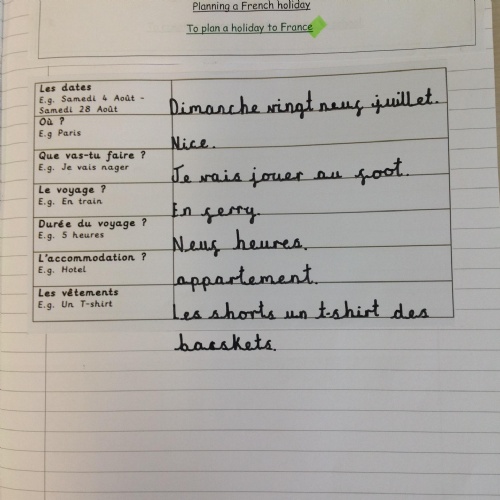 Planning a French holiday
To plan a holiday to France
Les dates
E.g. Samedi 4 Août -
Samedi 28 Août
Dimanche vingt neuf juillet.
Où ?
E.g Paris
Nice.
Que vas-tu faire ?
E.g. Je vais nager
Je vais jouer au foot.
Le voyage ?
E.g. En train
En ferry.
Durée du voyage ?
E.g. 5 heures
Neuf heures.
L'accommodation ?
E.g. Hotel
appartement.
Les vêtements
E.g. Un T-shirt
Les shorts un t-shirt des
basskets.